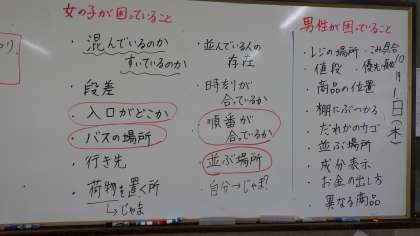 女の子が困っていること
・混んでいるのか
すいているのか
・段差
・入口がどこか
・バスの場所
・行き先
・荷物を置く所
↳じゃま
・並んでいる人の
存在
・時刻が
合っているか
・順番が
合っているか
・並ぶ場所
・自分→じゃま?
男性が困っていること
・レジの場所
・こみ具合
・値段
・商品の位置
・棚にぶつかる
・だれかのカゴ
・並ぶ場所
・成分表示
・お金の出し方
・異なる商品
10月1日(木)